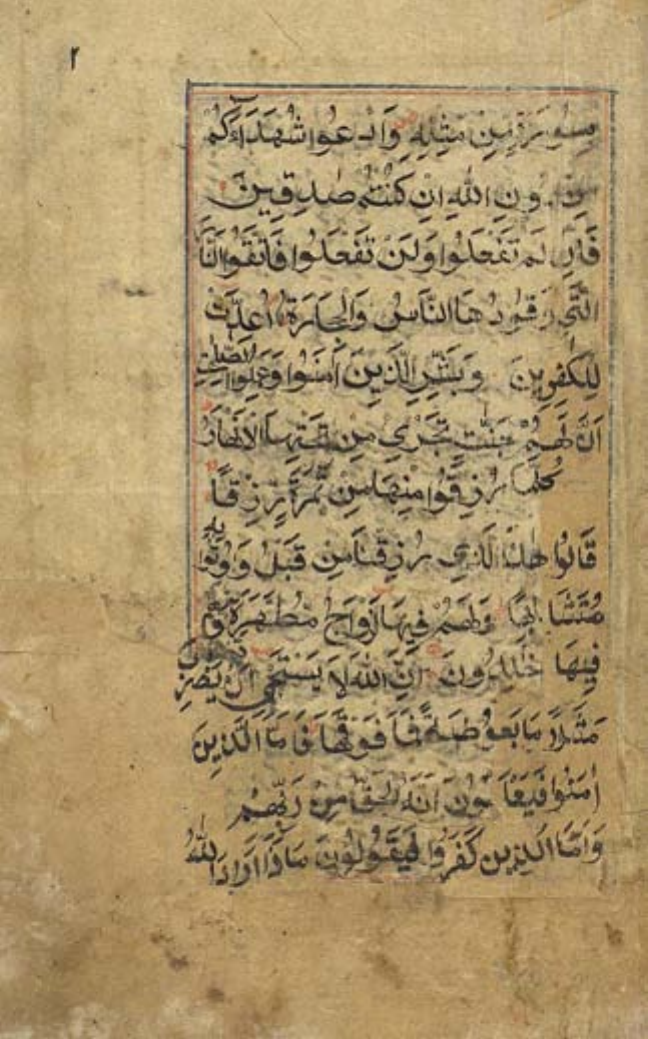 ٢
بسورة من مثله وادعوا شهداءكم
من دون الله ان كنتم صدقين
فان لم تفعلوا ولن تفعلوا فاتقوا النا
التي وقودها الناس والحجارة اعدت
للكفرين وبشر الذين امنوا وعملوا الصلحت
ان لهم جنت تجري من تحتها الانهار
كلما رزقوا منها من ثمرة رزقا
قالوا هذا الذي رزقنا من قبل واوتوا به
متشابها ولهم فيها ازواج مطهرة وهم
فيها خلدون ان الله لا يستحي ان يضرب
مثلا ما بعوضة فما فوقها فاما الذين
امنوا فيعلمون انه الحق من ربهم
واما الذين كفروا فيقولون ماذا اراد الله